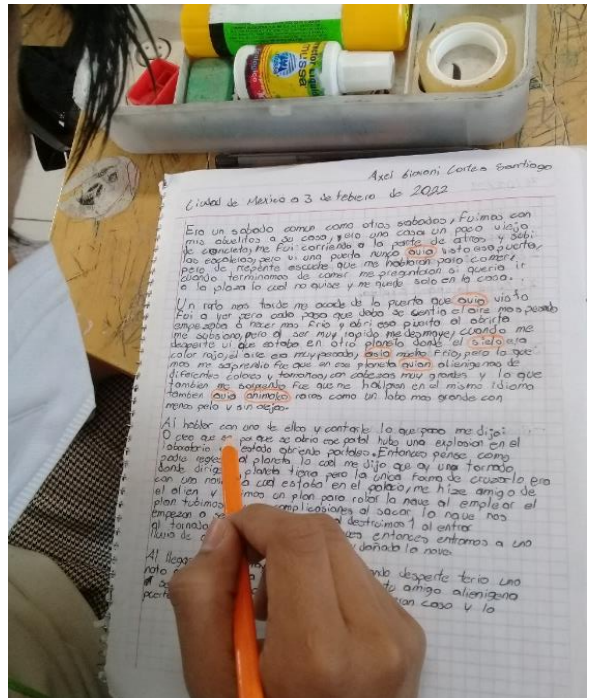 mussa
Axel Giovani Cortes Santiago
Ciudad de México a 3 de febrero de 2022
Era un sabado comun como otros sabados, fuimos con
mis abuelitos a su casa, era una casa un poco vieja
de concreto, me fui corriendo a la parte de atras y subi
las escaleras, pero vi una puerta nunca auia visto esa puerta,
pero de repente escuche que me hablaron para comer,
cuando terminamos de comer me preguntaron si queria ir
a la plaza lo cual no quise y me quede solo en la casa.
Un rato mas tarde me acorde de la puerta que auia visto
fui a ver pero cada paso que daba se sentia el aire mas pesado
empezaba a hacer mas frio y abri esa puerta al abrirla
me sabsorio, pero al ser muy rapido me desmaye, cuando me
desperte vi que estaba en otro planeta donde el sielo era
color rojo, el aire era muy pesado, asia mucho frio, pero lo que
mas me saprendio fue que en ese planeta auian alienigenas de
diferentes colores y tamaños, con cabezas muy grandes y lo que
tambien me sorprendio fue que me hablaran en el mismo idioma
tambien auia animales raros como un lobo mas grande con
menos pelo y sin orejas.
Al hablar con uno de ellos y contarle lo que paso me dijo:
creo que porque se abrio ese portal hubo una explosion en el
laboratorio estado abriendo portales. Entonces pense, como
podre regresar al planeta lo cual me dijo que ay una tornado
donde dirige planeta tierra pero la unica forma de cruzarlo era
con una nave la cual estaba en el palacio, me hize amigo de
el alien y hicimos un plan para robar la nave al emplear el
plan tubimos complicasiones al sacar la nave nos
empezan a destruimos 1 al entrar
al tornado entonces entramos a una
lluvia de dañado la nave.
Al llegar
desperte tenia una
amigo alienigena
casa y lo